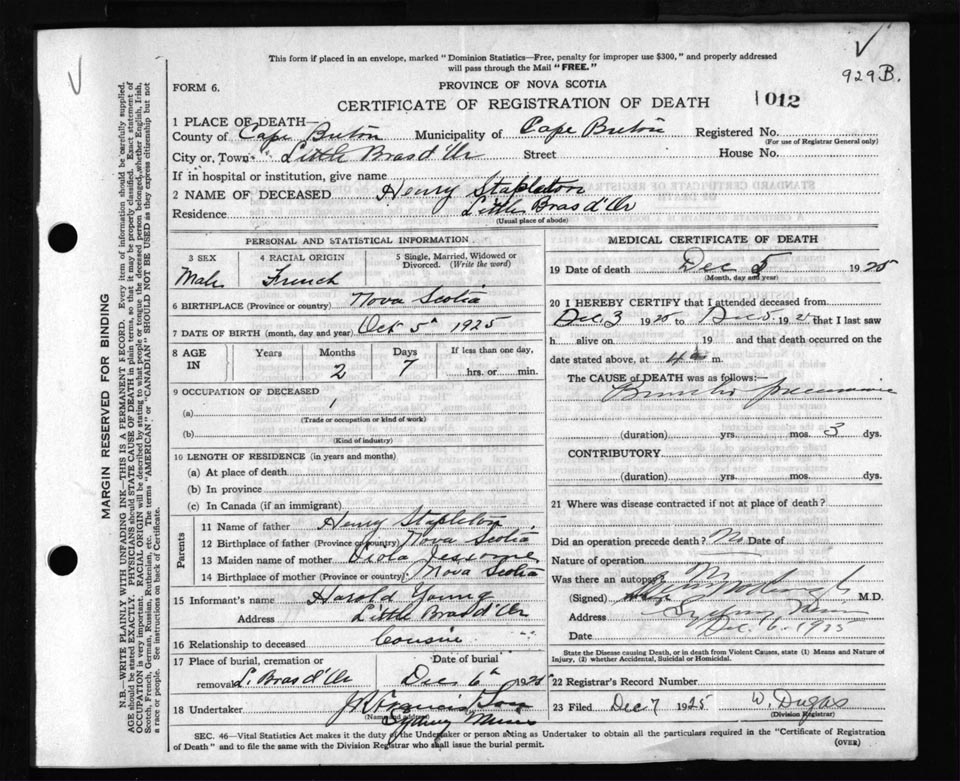 This form if placed in an envelope, marked "Dominion Statistics—Free, penalty for improper use $300," and properly addressed
will pass through the Mail "FREE."
929B.
FORM 6.
PROVINCE OF NOVA SCOTIA
CERTIFICATE OF REGISTRATION OF DEATH
1012
1 PLACE OF DEATH—
County of Cape Breton Municipality of Cape Breton Registered No.
(For use of Registrar General only)
City or, Town Little Bras d'Or Street House No.
If in hospital or institution, give name
2 NAME OF DECEASED Henry Stapleton
Residence Little Bras d'Or
(Usual place of abode)
PERSONAL AND STATISTICAL INFORMATION
3 SEX
Male
4 RACIAL ORIGIN
French
5 Single, Married, Widowed or
Divorced. (Write the word)
6 BIRTHPLACE (Province or country) Nova Scotia
7 DATE OF BIRTH (month, day and year) Oct 5th 1925
8 AGE
IN
Years Months Days If less than one day,
2 7 hrs. or min.
9 OCCUPATION OF DECEASED
(a)
(Trade or occupation or kind of work)
(b)
(Kind of industry)
10 LENGTH OF RESIDENCE (in years and months)
(a) At place of death
(b) In province
(c) In Canada (if an immigrant)
Parents
11 Name of father Henry Stapleton
12 Birthplace of father (Province or country) Nova Scotia
13 Maiden name of mother Viola
14 Birthplace of mother (Province or country) Nova Scotia
15 Informant's name Harold Young
Address Little Bras d'Or
16 Relationship to deceased Cousin
17 Place of burial, cremation or
removal L. Bras d'Or
Date of burial
Dec 6th 1925
18 Undertaker J R Francis & Son
(Name and address)
Sydney Mines
MEDICAL CERTIFICATE OF DEATH
19 Date of death Dec 5 1925
(Month, day and year)
20 I HEREBY CERTIFY that I attended deceased from
Dec. 3 1925 to Dec. 5. 1925 that I last saw
h alive on 19 and that death occurred on the
date stated above, at 4 a m.
The CAUSE of DEATH was as follows:
Broncho pneumonia
(duration) yrs. mos. 3 dys.
CONTRIBUTORY
(duration) yrs. mos. dys.
21 Where was disease contracted if not at place of death?
Did an operation precede death? No Date of
Nature of operation
Was there an autopsy?
(Signed) M.D.
Address Sydney Mines
Date Dec. 6. 1925
State the Disease causing Death, or in death from Violent Causes, state (1) Means and Nature of
Injury, (2) whether Accidental, Suicidal or Homicidal.
22 Registrar's Record Number
23 Filed Dec 7 1925 W. Dugas
(Division Registrar)
SEC. 46—Vital Statistics Act makes it the duty of the Undertaker or person acting as Undertaker to obtain all the particulars required in the "Certificate of Registration
of Death" and to file the same with the Division Registrar who shall issue the burial permit.
(OVER)
MARGIN RESERVED FOR BINDING
N.B.—WRITE PLAINLY WITH UNFADING INK—THIS IS A PERMANENT RECORD. Every item of information should be carefully supplied.
AGE should be stated EXACTLY. PHYSICIANS should STATE CAUSE OF DEATH in plain terms, so that it may be properly classified. Exact statement of
OCCUPATION is very important. RACIAL ORIGIN will be described by stating to what people or tongue the deceased person belonged, whether English, Irish,
Scotch, French, German, Russian, Ruthenian, etc. The terms "AMERICAN" or "CANADIAN" SHOULD NOT BE USED as they express citizenship but not
a race or people. See instructions on back of Certificate.